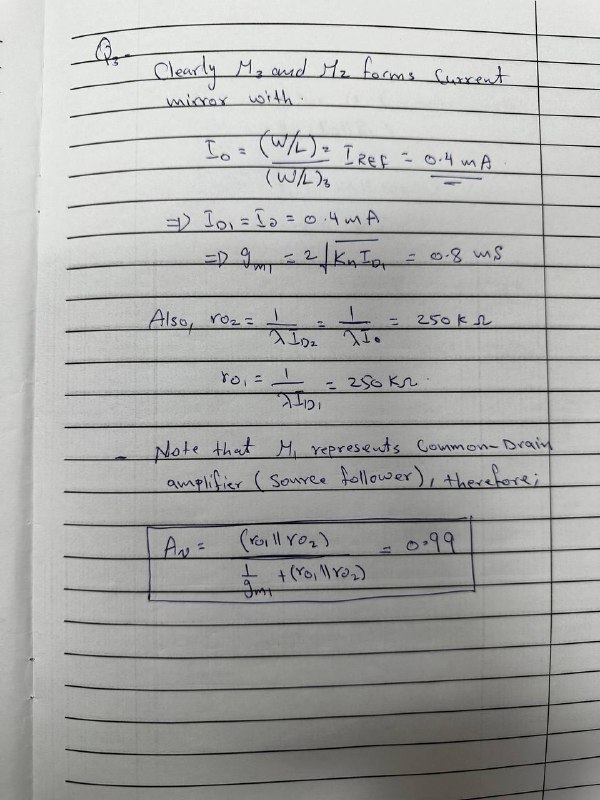 Q3-
Clearly M3 and M2 forms current
mirror with.
Io = (W/L)2 / (W/L)3 IREF = 0.4 mA.
⇒ ID1 = Io = 0.4 mA
⇒ gm1 = 2√KnID1 = 0.8 mS
Also, ro2 = 1/λID2 = 1/λIo = 250 k Ω
ro1 = 1/λID1 = 250 kΩ.
- Note that M1 represents Common-Drain
amplifier (source follower), therefore;
Av = (ro1 || ro2) / (1/gm1 + (ro1 || ro2)) = 0.99